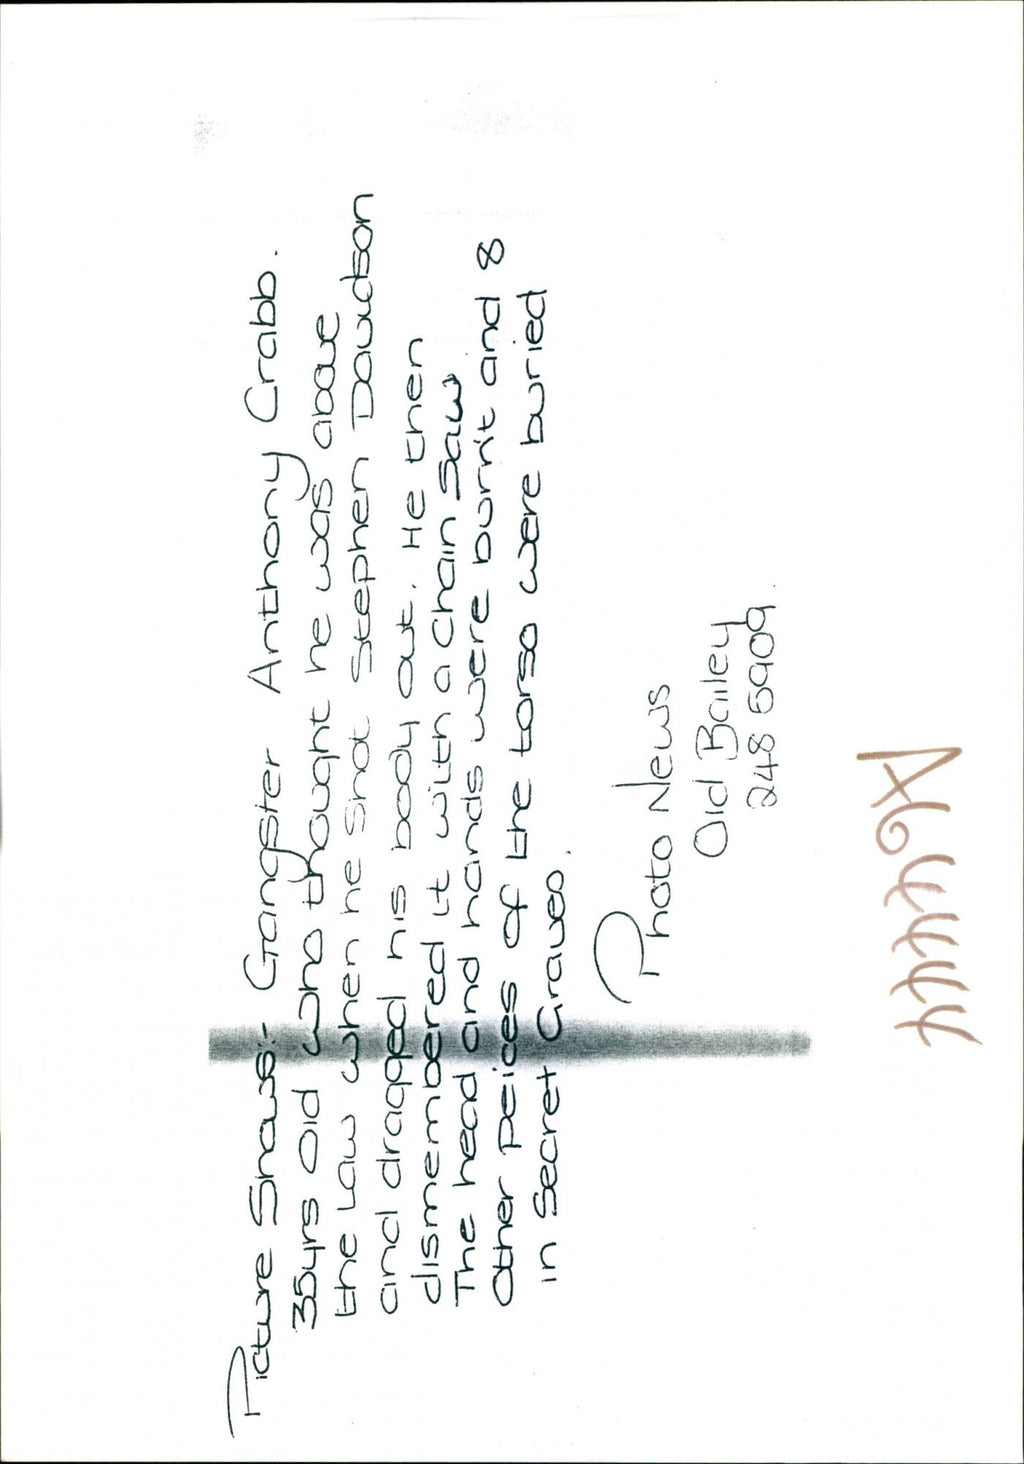 Picture Shows:- Gangster Anthony Crabb.
35yrs Old who thought he was above
the Law when he Shot Stephen Davidson
and dragged his body out. He then
dismembered it with a Chain Saw
The head and hands were burnt and 8
Other peices of the torso were buried
in Secret Graves.
Photo News
Old Bailey
248 5909